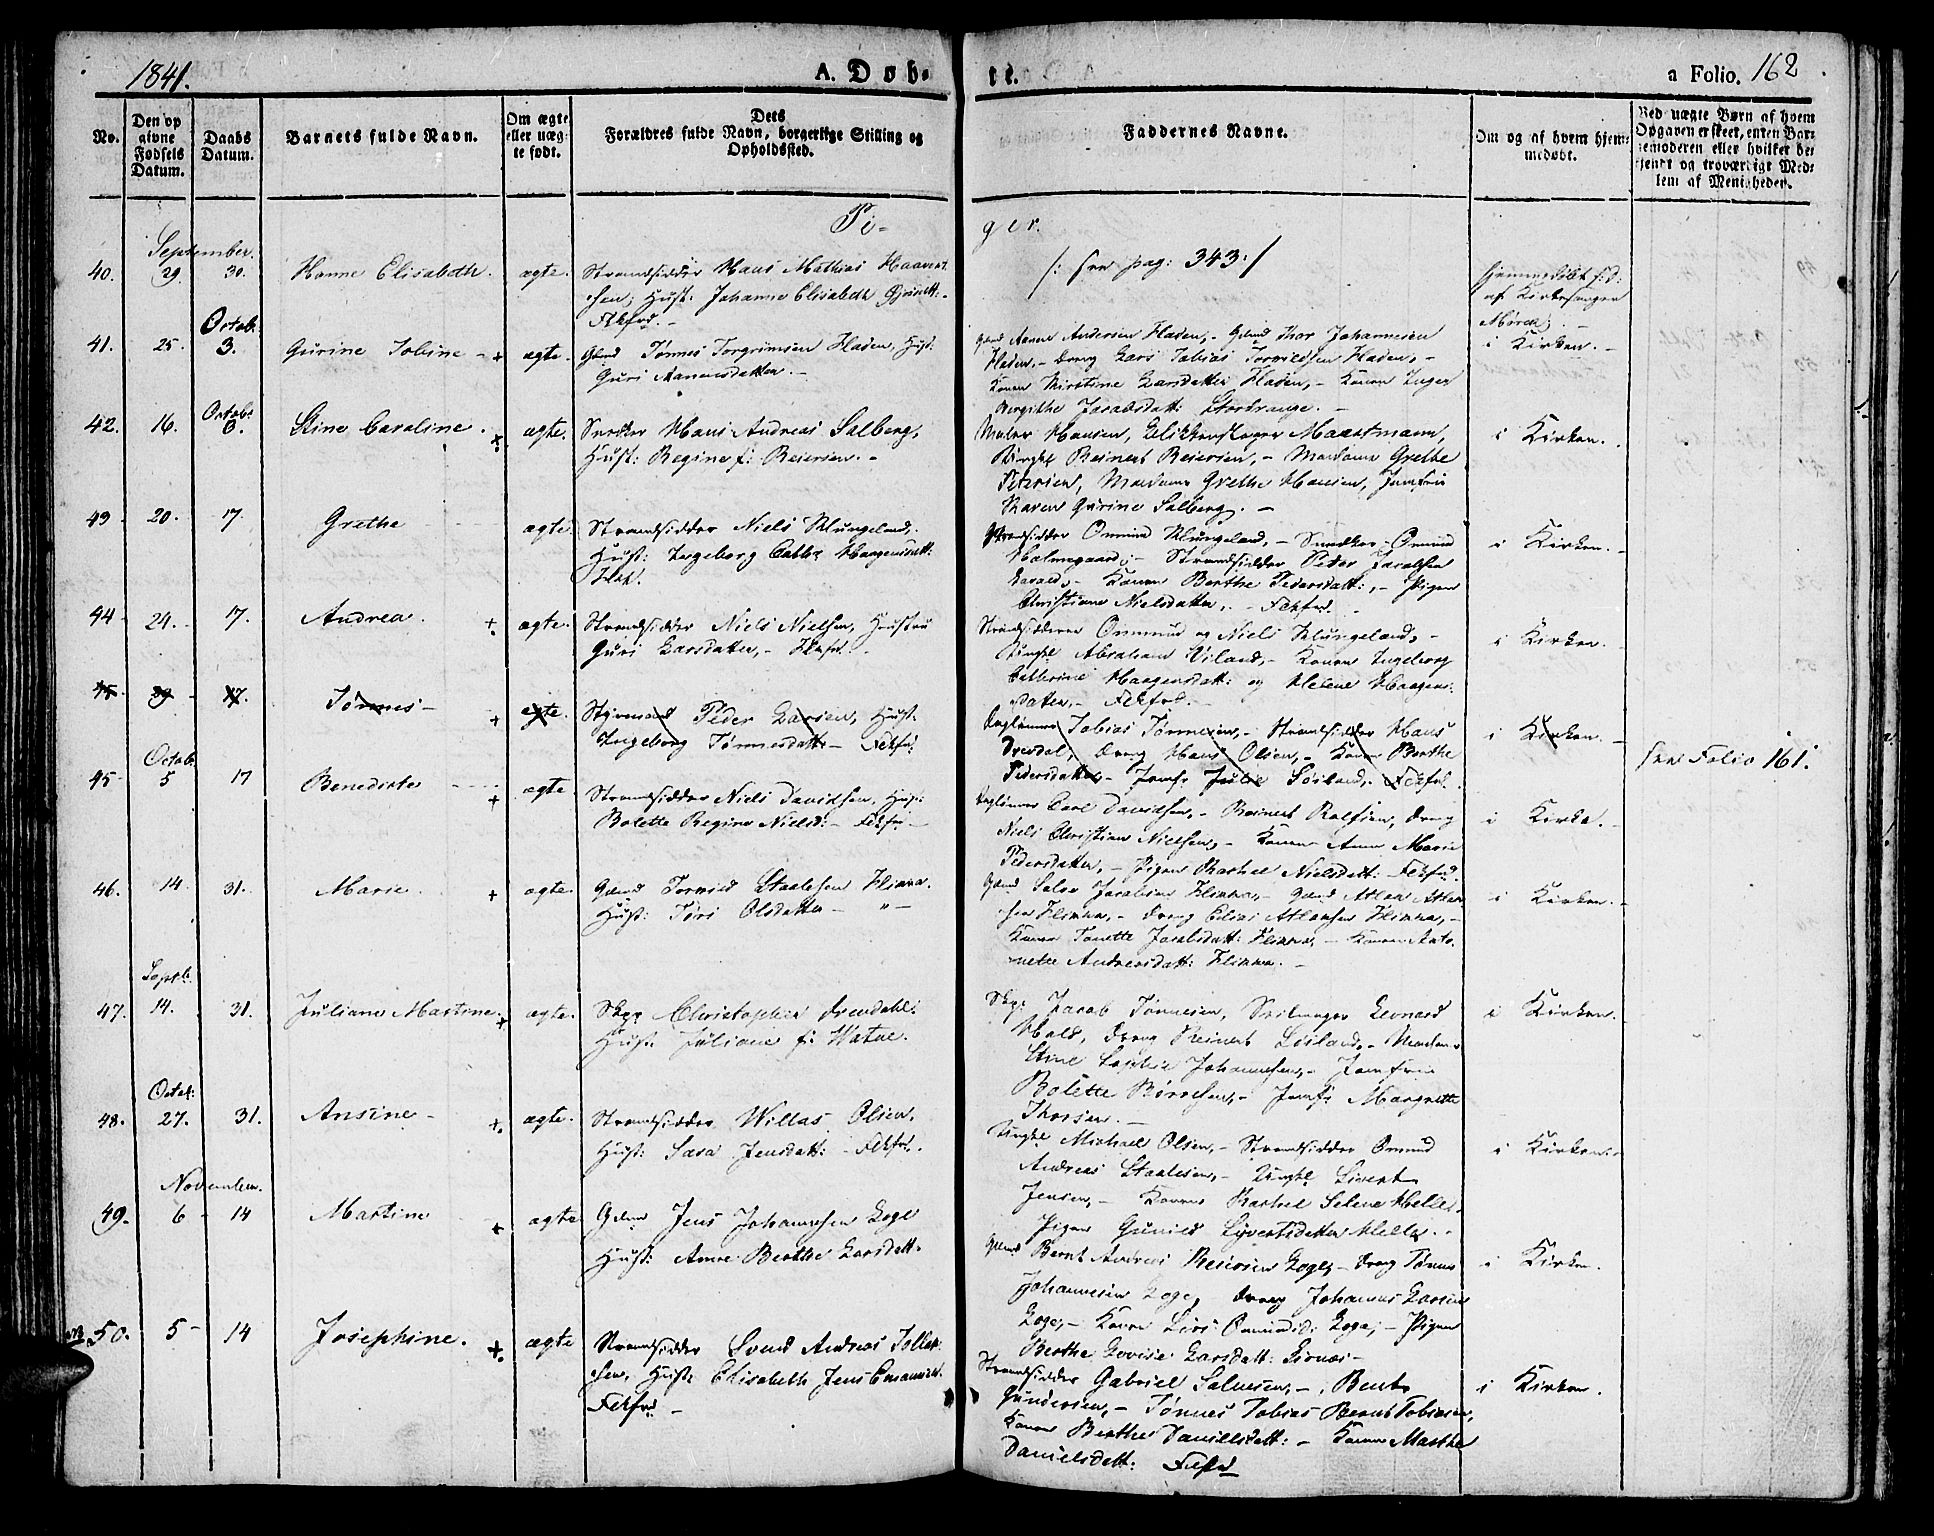 1841.
A. Døb-
te.
a Folio. 162
No.
Den op
givne
Fødsels
Datum.
Daabs
Datum.
Barnets fulde Navn.
Om ægte
eller uæg-
te født.
Dets
Forældres fulde Navn, borgerlige Stilling og
Opholdssted.
Faddernes Navne.
Om og af hvem hjem-
medøbt.
Ved uægte Børn af hvem
Opgaven er skeet, enten Bar-
nemoderen eller hvilket be-
kjendt og troværdigt Med-
lem af Menigheden.
Pi-
ger.
September.
40. 29. 30. Hanne Elisabeth. ægte. Strandsidder Hans Mathias
sen, Hust: Johanne Elisabeth
Fkfrd. -
/: see pag: 343 :/
hjemmedøbt
af Kirkesanger
Mørch.
Octob:
41. 25. 3. Gurine Tobine - + ægte. Gmd Tønnes Torgrimsen Hadén, Hust:
Guri Aanensdatter. -
Gmd Aanen Andersen Hadén, - Gmd Thor Johannesen
Hadén, - Dreng Lars Tobias Torgildsen Hadén, -
Konen Kirstine Larsdatter Hadén, - Konen Inger
Bergithe Jacobsdatt: Stordrange. -
i Kirken. -
Octob:
42. 16. 3. Stine Caroline. + ægte. Snedker Hans Andreas Salberg,
Hust: Regine f: Reiersen. -
Maler Hansen, Maastmann,
Ungkl Reinert Reiersen, - Madame Grethe
Petersen, Madame Grethe Hansen, Jomfru
Maren Gurine Salberg. -
i Kirken.
43 20. 17. Grethe ægte. Strandsidder Niels Klungeland,
Hust: Ingeborg Cathr. Haagensdatt:
Fkf.
Strandsidder Ommund Klungeland, - Snedker Ommund
Holmegaard, - Strandsidder Peder Jacobsen
- Konen Berthe Pedersdatt:, - Pigen
Christiane Nielsdatter, - Fekfrd.
i Kirken. -
44 24. - 17. Andrea. + ægte. Strandsidder Niels Nielsen, Hustru
Guri Larsdatter, - Fkfrd.
Strandsidderne Ommund og Niels Klungeland, -
Ungkl Abraham Øiland, - Konen Ingeborg
Cathrine Haagensdatt: og Helene Haagens-
datter, - Fekfrd. -
i Kirken.
45. 29 - 17. Tønnes - + ægte. Styrmand Peder Larsen, Hust:
Ingeborg Tønnesdatt: - Fekfrd
Tobias Tønnesen, - Strandsidder Hans
Drevdal, Dreng Hans Olsen, - Konen Berthe
Pedersdatter, - Jomfr Julie Løiland, - Fekfrd.
i Kirken. -
see Folio 161.
Octob:
45 5 17 Benedicte + ægte. Strandsidder Niels Davidsen, Hust:
Bolette Regine Nielsd: - Fekfrd -
Carl Davidsen, - Reinert Rolfsen, Dreng
Niels Christian Nielsen, - Konen Anne Marie
Pedersdatter, - Pigen Rachel Nielsdatt: Fekfrd.
i Kirke.
46. 14. 31. Marie. + ægte. Gmd Tørnies Staalesen Flikka.
Hust: Turi Olsdatter - " -
Gmd Salve Jacobsen Flikka, - Gmd Atlak Atlak-
sen Flikka, - Dreng Elias Atlaksen Flikka, -
Konen Tonette Jacobsdatt: Flikka, - Konen Anto-
nette Andreasdatt: Flikka. -
i Kirken. -
Septb:
47. 14. 31. Juliane Martine. + ægte. Skpr Christopher Drevdahl.
Hust: Juliane f: Watne.
Skpr Jacob Tønnesen, Seilmager Leonard
Hald, Dreng Reinert Løiland, - Madame
Stine Sophie Johannesen, - Jomfrue
Bolette Børresen, - Jomfr Margrette
Thorsen. -
i Kirken.
Octob:
48. 27. 31. Ansine - + ægte. Strandsidder Willas Olsen.
Hust: Sara Jensdatt: - Fekfrd.
Ungkl Michael Olsen, - Strandsidder Ommund
Andreas Staalesen, - Ungkl Sivert
Jensen, - Konen Rachel Selene Helle,
Pigen Gunild Syvertsdatter Helle. -
i Kirken.
November.
49. 6 - 14 Martine + ægte Gmd Jens Johannesen Loge
Hust: Anne Berthe Larsdatt.
Gmd Bernt Andreas Reiersen Loge, - Dreng Tønnes
Johannesen Loge, Dreng Johannes Larsen
Loge, - Konen Siri Ommundsd: Loge, - Pigen
Berthe Lovise Larsdatt: -
i Kirken.
50. 5 - 14 Josephine. + ægte Strandsidder Svend Andreas Tollak-
sen, Hust: Elisabeth Jens
Fekfrd -
Strandsidder Gabriel Salvesen, - Bent
Gundersen, - Tønnes Tobias Bernt Tobiasen,
Konen Berthe Danielsdatt: - Konen Marthe
Danielsdatt: Fkfrd
i Kirken.